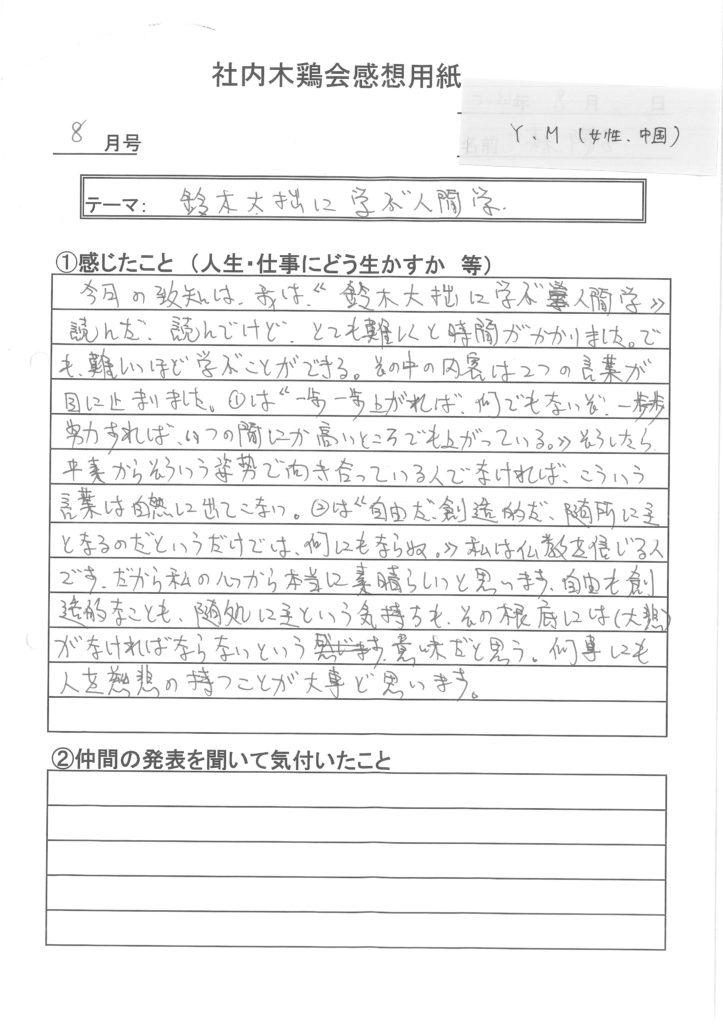 社内木鶏会感想用紙
年 8月 日
8 月号
名前
Y.M (女性、中国)
テーマ: 鈴木大拙に学ぶ人間学.
①感じたこと (人生・仕事にどう生かすか 等)
今月の致知は、我は、《鈴木大拙に学ぶ人間学》
読んだ、読んでけど、とても難しくと時間がかかりました。で
も、難しいほど学ぶことができる。その中の内容は2つの言葉が
目に止まりました。①は《一歩一歩上がれば、何でもないぞ、一歩歩
努力すれば、いつの間にか高いところでも上がっている。》そうしたら
平素からそういう姿勢で向き合っている人でなければ、こういう
言葉は自然に出てこない。②は《自由だ、創造的だ、随所に主
となるのだというだけでは、何にもならぬ。》私は仏教を信じる人
です、だから私の心から本当に素晴らしいと思います、自由も創
造的なことも、随処に主という気持ちも、その根底には(大悲)
がなければならないという意味だと思う。何事にも
人を慈悲の持つことが大事ど思います。
②仲間の発表を聞いて気付いたこと